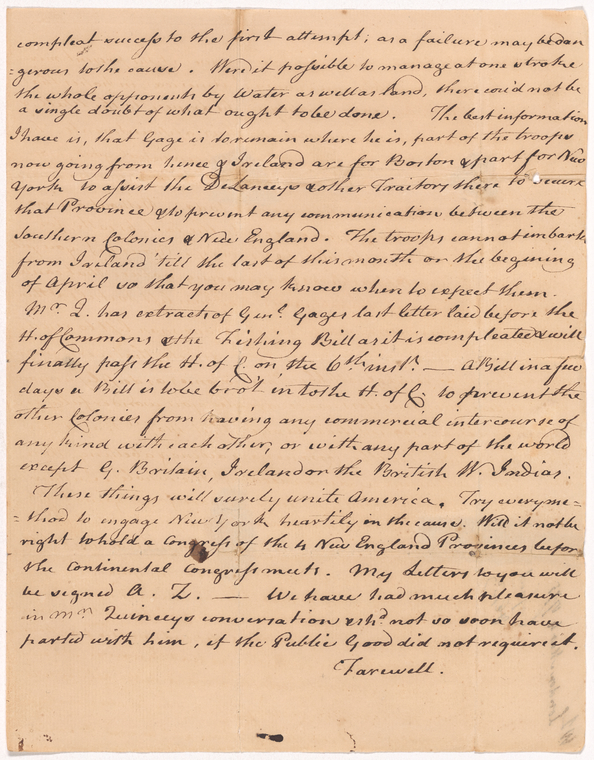 compleat success to the first attempt; as a failure may be dan
=gerous to the cause. Were it possible to manage at one stroke
the whole opponents by Water as well as land, there cou'd not be
a single doubt of what ought to be done. The best information
I have is, that Gage is to remain where he is, part of the troops
now going from hence & Ireland are for Boston & part for New
York to assist the DeLanceys & other Traitors there to secure
that Province & to prevent any communication between the
Southern Colonies & New England. The troops cannot imbark
from Ireland till the last of this month or the begining
of April so that you may know when to expect them.
Mr. Q. has extracts of Genl. Gages last letter laid before the
H. of Commons & the Fishing Bill as it is compleated & will
finally pass the H. of C. on the 6th inst. — A Bill in a few
days a Bill is to be bro't in to the H. of C. to prevent the
other Colonies from having any commercial intercourse of
any kind with each other, or with any part of the world
except G. Britain, Ireland or the British W. Indias.
These things will surely unite America. Try every me=
=thod to engage New York heartily in the cause. Will it not be
right to hold a Congress of the 4 New England Provinces before
the Continental Congress meets. My Letters to you will
be signed A. Z. — We have had much pleasure
in Mr. Quinceys conversation & shd. not so soon have
parted with him, if the Public Good did not require it.
Farewell.